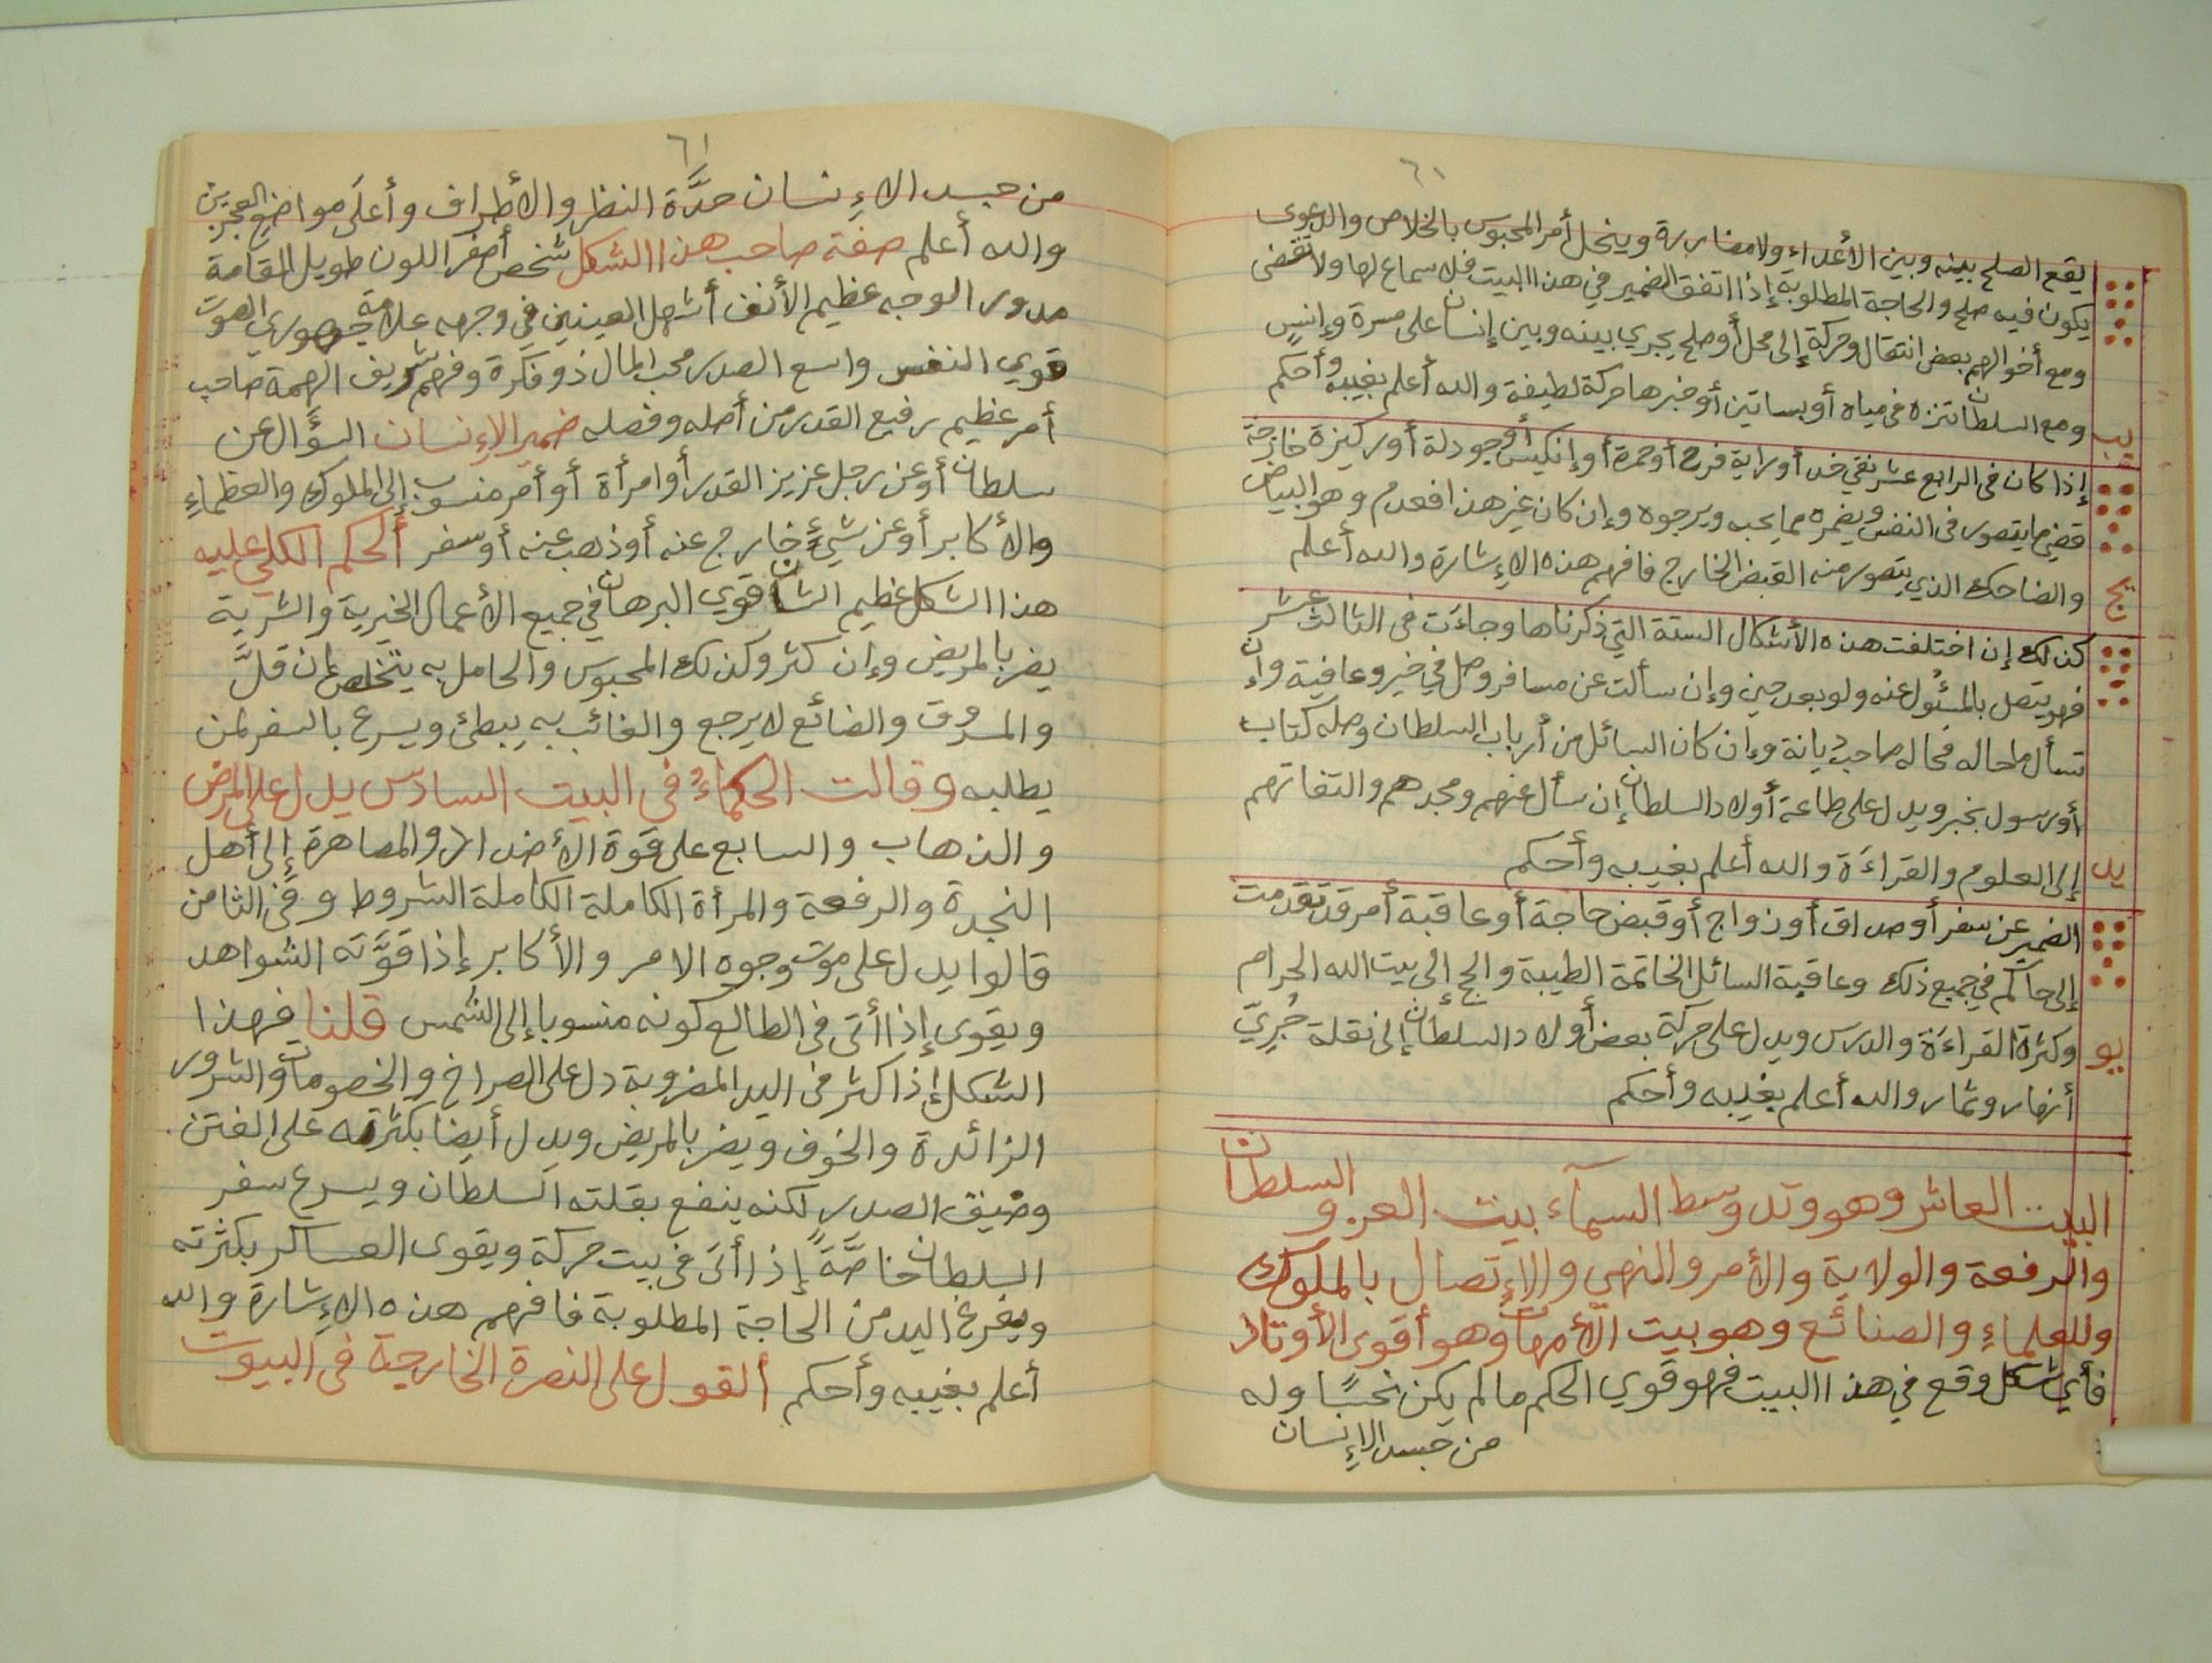 ٦٠
يقع الصلح بينه وبين الأعداء ولا مضاربة وينحل أمر المحبوس بالخلاص والدعوى
يكون فيه صلح والحاجة المطلوبة إذا اتفق الضمير في هذا البيت فلا سماع لها ولا تقضى
ومع أخو الهم بعض انتقال وحركة إلى محل أو صلح يجري بينه وبين إنسان على مسرة وإنس
ومع السلطان تنزه في مياه أو بساتين أو خبرها حركة لطيفة والله أعلم بغيبه وأحكم
يب
إذا كان في الرابع عشر نقي خد أو راية فرح أو حمرة أو إنكيس أو جودلة أو ركيزة خارجة
قضي ما يتصور في النفس ويضمره مما يحبه ويرجوه وإن كان غير هذا فعدم وهو البياض
والضاحك الذي يتصور منه القبض الخارج فافهم هذه الإشارة والله أعلم
يج
كذلك إن اختلفت هذه الأشكال الستة التي ذكرناها وجاءت في الثالث عشر
فهو يتصل بالمسئول عنه ولو بعد حين وإن سألت عن مسافر وصل في خير وعافية وإن
تسأل ما حاله فحاله صاحب ديانة وإن كان السائل من أرباب السلطان وصله كتاب
أو رسول بخبر ويدل على طاعة أولاد السلطان إن سأل عنهم ومجدهم والتفاتهم
يد إلى العلوم والقراءة والله أعلم بغيبه وأحكم
الضمير عن سفر أو صداق أو زواج أو قبض حاجة أو عاقبة أمر قد تقدمت
إلى حاكم في جميع ذلك وعاقبة السائل الخاتمة الطيبة والحج إلى بيت الله الحرام
يو وكثرة القراءة والدرس ويدل على حركة بعض أولاد السلطان إلى نقلة
أنهار وثمار والله أعلم بغيبه وأحكم
البيت العاشر وهو وتد وسط السمآء بيت العز و السلطان
والرفعة والولاية والأمر والنهي والإتصال بالملوك
وللعلماء والصنائع وهو بيت الأمهات وهو أقوى الأوتاد
فأي شكل وقع في هذا البيت فهو قوي الحكم ما لم يكن نحسًا وله
من جسد الإنسان
٦١
من جسد الإنسان حدَّة النظر والأطراف وأعلى مواضع العجزين
والله أعلم صفة صاحب هذا الشكل شخص أصفر اللون طويل القامة
مدور الوجه عظيم الأنف أشهل العينين في وجهه علامة جهوري الصوت
قوي النفس واسع الصدر محب المال ذو فكرة وفهم شريف الهمة صاحب
أمر عظيم رفيع القدر من أصله وفصله ضمير الإنسان السؤال عن
سلطان أو عن رجل عزيز القدر أو امرأة أو أمر منسوب إلى الملوك والعظماء
والأكابر أو عن شيء خارج عنه أو ذهب عنه أو سفر ألحكم الكلي عليه
هذا الشكل عظيم الشان قوي البرهان في جميع الأعمال الخيرية والشرية
يضر بالمريض وإن كثر وكذلك المحبوس والحامل به يتخلص لمن قلَّ
والمسروق والضائع لا يرجع والغائب به يبطئ ويسرع بالسفر لمن
يطلبه وقالت الحكماءُ في البيت السادس يدل على المرض
والذهاب والسابع على قوة الأضداد والمصاهرة إلى أهل
النجدة والرفعة والمرأة الكاملة الكاملة الشروط وفي الثامن
قالوا يدل على موت وجوه الامر والأكابر إذا قوَّته الشواهد
ويقوى إذا أتى في الطالع كونه منسوبا إلى الشمس قلنا فهذا
الشكل إذا كثر في اليد المضروبة دل على الصراخ والخصومات والشرور
الزائدة والخوف ويضر بالمريض ويدل أيضا بكثرته على الفتن
وضيق الصدر لكنه ينفع بقلته السلطان ويسرع سفر
السلطان خاصَّةً إذا أتى في بيت حركة ويقوى العساكر بكثرته
ويفرغ اليد من الحاجة المطلوبة فافهم هذه الإشارة والله
أعلم بغيبه وأحكم ألقول على النصرة الخارجية في البيوت